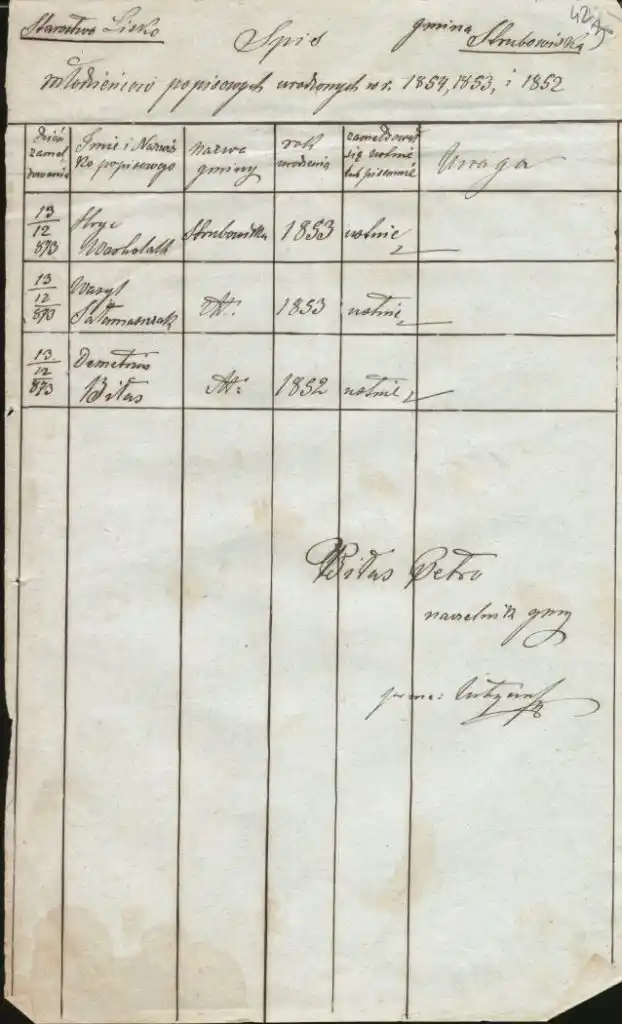 42
Starostwo Lisko
Spis
gmina
Strubowiska
młodzieńców popisowych urodzonych w r. 1854, 1853, i 1852
dzień zamel dowania
Imie i Nazwis ko popisowego
nazwa gminy
rok urodzenia
zameldował się ustnie lub pisemnie
Uwaga
13/12 873
Hryc Warholak
Strubowiska
1853
ustnie
13/12 873
Wasyl
1853
ustnie
13/12 873
Demetrius Biłas
1852
ustnie
Biłas Petro
naczelnik gmy